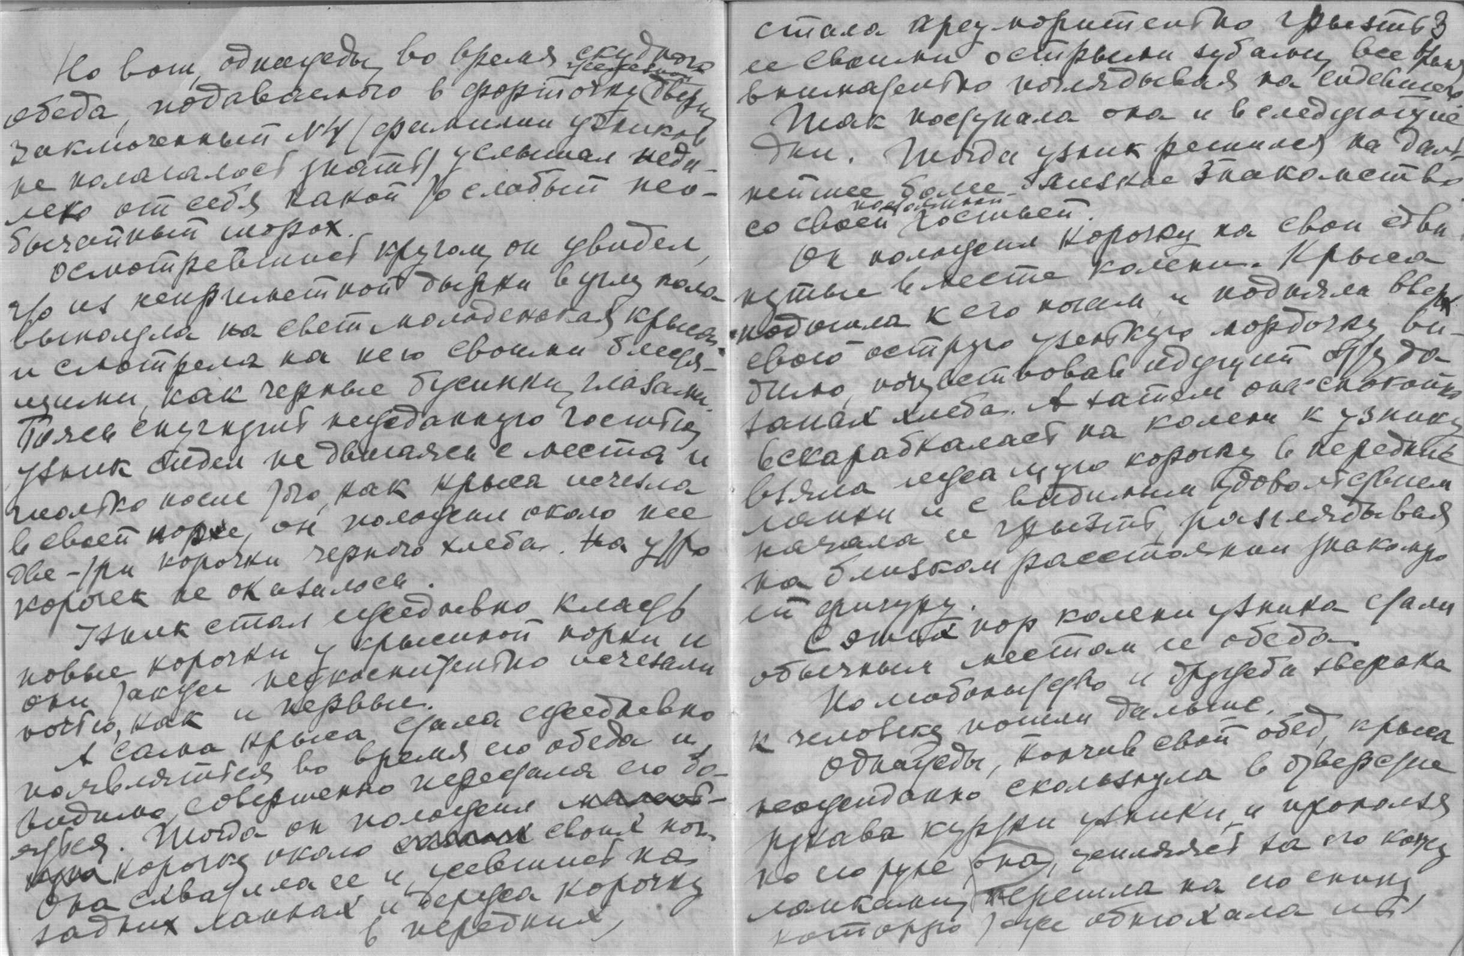 Но вот, однажды, во время скудного
обеда, подаваемого в форточку двери,
заключенный № 4 (фамилии узников
не полагалось знать) услышал неда-
леко от себя какой то слабый нео-
бычайный шорох.
Осмотревшись кругом, он увидел,
что из неприметной дырки в углу пола
выползла на свет молоденькая крыса
и смотрела на него своими блестя-
щими, как черные бусинки, глазами.
Боясь спугнуть нежданную гостью,
узник сидел не двигаясь с места и
только после того, как крыса исчезла
в своей норке, он положил около нее
две-три корочки черного хлеба. На утро
корочек не оказалось.
Узник стал ежедневно класть
новые корочки у крысиной норки и
они также неукоснительно исчезали
ночью, как и первые.
А сама крыса стала ежедневно
появляться во время его обеда и,
видимо, совершенно перестала его бо-
яться. Тогда он положил
корочку около своих ног.
Она схватила ее и, усевшись на
задних лапках и держа корочку
в передних,
стала преуморительно грызть 3
ее своими острыми зубами, все время
внимательно поглядывая на сидевшего
Так поступала она и в следующие
дни. Тогда узник решился на даль-
нейшее более близкое знакомство
со своей гостьей.
Он положил корочку на свои сдви-
нутые вместе колени. Крыса
подошла к его ногам и подняла вверх
свою острую узенькую мордочку, ви-
димо, почувствовав идущий оттуда
запах хлеба. А затем она спокойно
вскарабкалась на колени к узнику
взяла лежащую корочку в передние
лапки и с видимым удовольствием
начала ее грызть, разглядывая
на близком расстоянии знакомую
ей фигуру.
С этих пор колени узника стали
обычным местом ее обеда.
Но любопытство и дружба зверька
к человеку пошли дальше.
Однажды, кончив свой обед, крыса
неожиданно скользнула в отверстие
рукава куртки узника, и проползя
по его руке она, цепляясь за его кожу
лапками, перешла на его спину,
которую тоже обнюхала и